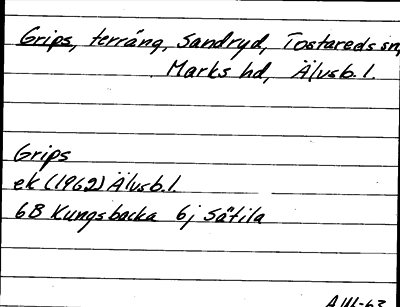 Grips, terräng, Sandryd, Tostareds sn,
Marks hd, Älvsb. l.
Grips
ek (1962) Älvsb. l
6B Kungsbacka 6j Sätila